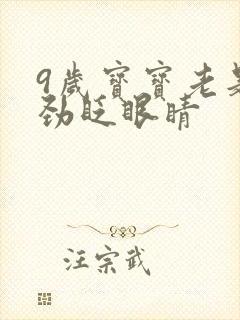 9歲寶寶老是
勁眨眼睛
汪宗武